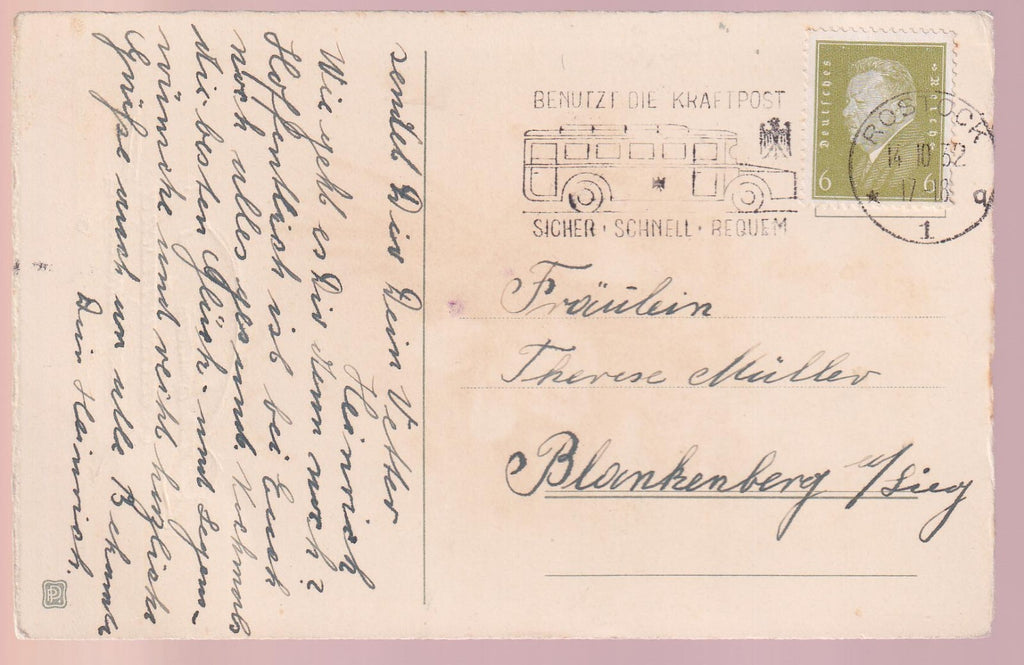 sendet Dir Dein Vetter
Heinrich
Wie geht es Dir denn noch?
Hoffentlich ist bei Euch
noch alles gesund. Nochmals
die besten Glück- und Segens-
wünsche und recht herzliche
Grüße auch an alle Bekannte
Dein Heinrich.
BENUTZT DIE KRAFTPOST
SICHER · SCHNELL · BEQUEM
Deutsches Reich
6 6
ROSTOCK
14 10 32
17-18
* 1 q
Fräulein
Therese Müller
Blankenberg a/Sieg